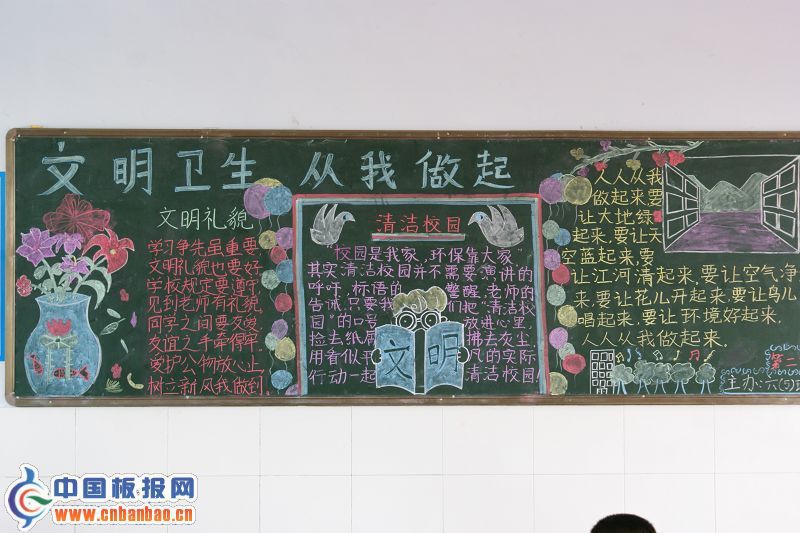 文明卫生 从我做起
文明礼貌
学习争先虽重要
文明礼貌也要好
学校规定要遵守
见到老师有礼貌
同学之间要友爱
友谊之手牵得牢
爱护公物放心上
树立新风我做到
清洁校园
“校园是我家,环保靠大家”
其实清洁校园并不需要演讲的
呼吁,标语的 警醒,老师的
告诫,只要我 们把“清洁校
园”的口号 放进心里,
捡去纸屑 拂去灰尘,
用看似平 凡的实际
行动一起 清洁校园
文明
人人从我
做起来,要
让大地绿
起来,要让天
空蓝起来,要
让江河清起来,要让空气净
来,要让花儿开起来,要让鸟儿
唱起来,要让环境好起来,
人人从我做起来.
第二
主办:六(1)
中国板报网
www.cnbanbao.cn